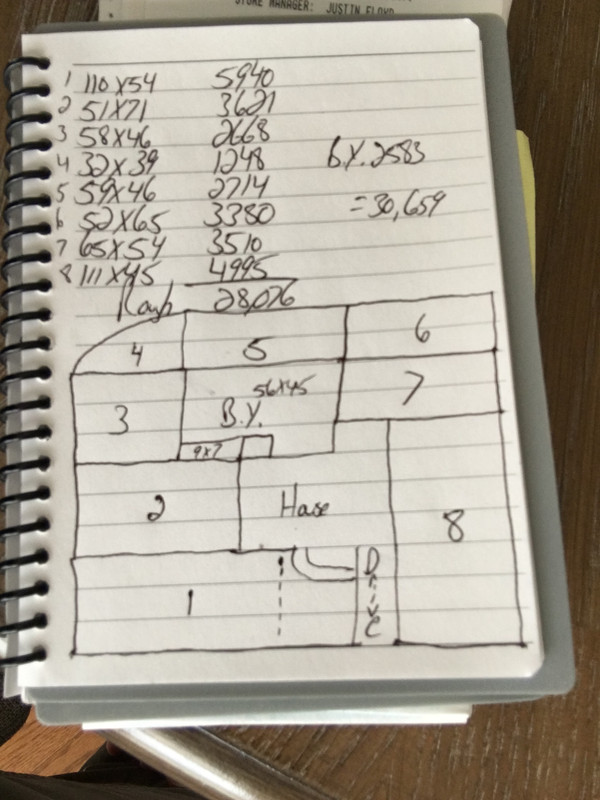 STORE MANAGER: JUSTIN FLOYD
1 110 x 54 5940
2 51 x 71 3621
3 58 x 46 2668
4 32 x 39 1248 B.Y. 2583
5 59 x 46 2714 = 30,659
6 52 x 65 3380
7 65 x 54 3510
8 111 x 45 4995
Rough 28,076
4 5 6
3 B.Y. 56x45 7
9x7
2 House 8
1 Drive